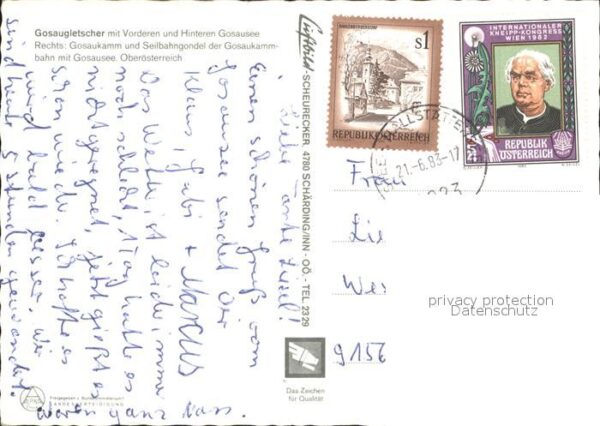 Gosaugletscher mit Vorderen und Hinteren Gosausee
Rechts: Gosaukamm und Seilbahngondel der Gosaukamm-
bahn mit Gosausee. Oberösterreich
Luftbild-SCHEURECKER, 4780 SCHÄRDING/INN - OÖ. - TEL. 2329
S1
REPUBLIK ÖSTERREICH
INTERNATIONALER
KNEIPP-KONGRESS
WIEN 1982
REPUBLIK
ÖSTERREICH
HALLSTÄTTERSEE
21.-6.83-17
Liebe Tante Liesel!
Einen schönen Gruß vom
Gosausee sendet Dir
Klaus, Gabi + Markus
Das Wetter ist leider immer
noch schlecht, 1 Tag hatte es
nicht geregnet, jetzt gießt es
schon wieder. Ich hoffe es
wird bald besser. Wir
sind heut 5 Stunden gewandert.
waren ganz nass.
Frau
Lie
We
9156
privacy protection
Datenschutz
Das Zeichen
für Qualität
LANDESVERTEIDIGUNG